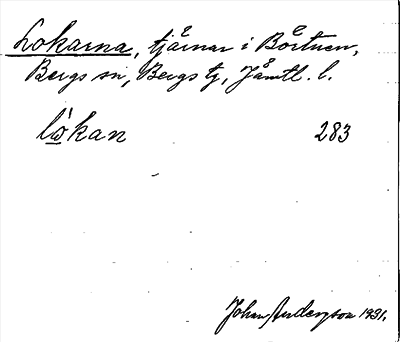 Lokarna, tjärnar i Börtnen,
Bergs sn, Bergs tg, Jämtl. l.
lo̊kan 283
Johan Anderzson 1931.